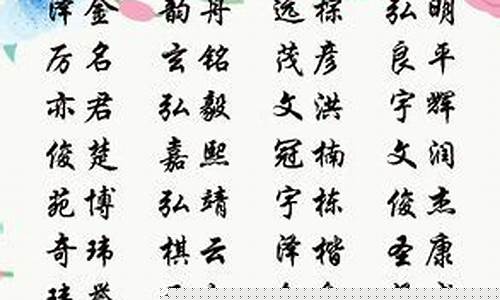 泽金 韵舟 远棕 弘明
厉名 玄铭 茂彦 良平
亦君 弘毅 文洪 宇辉
俊楚 嘉熙 冠楠 文润
苑博 弘靖 宇栋 俊杰
奇玮 棋云 泽楷 圣康